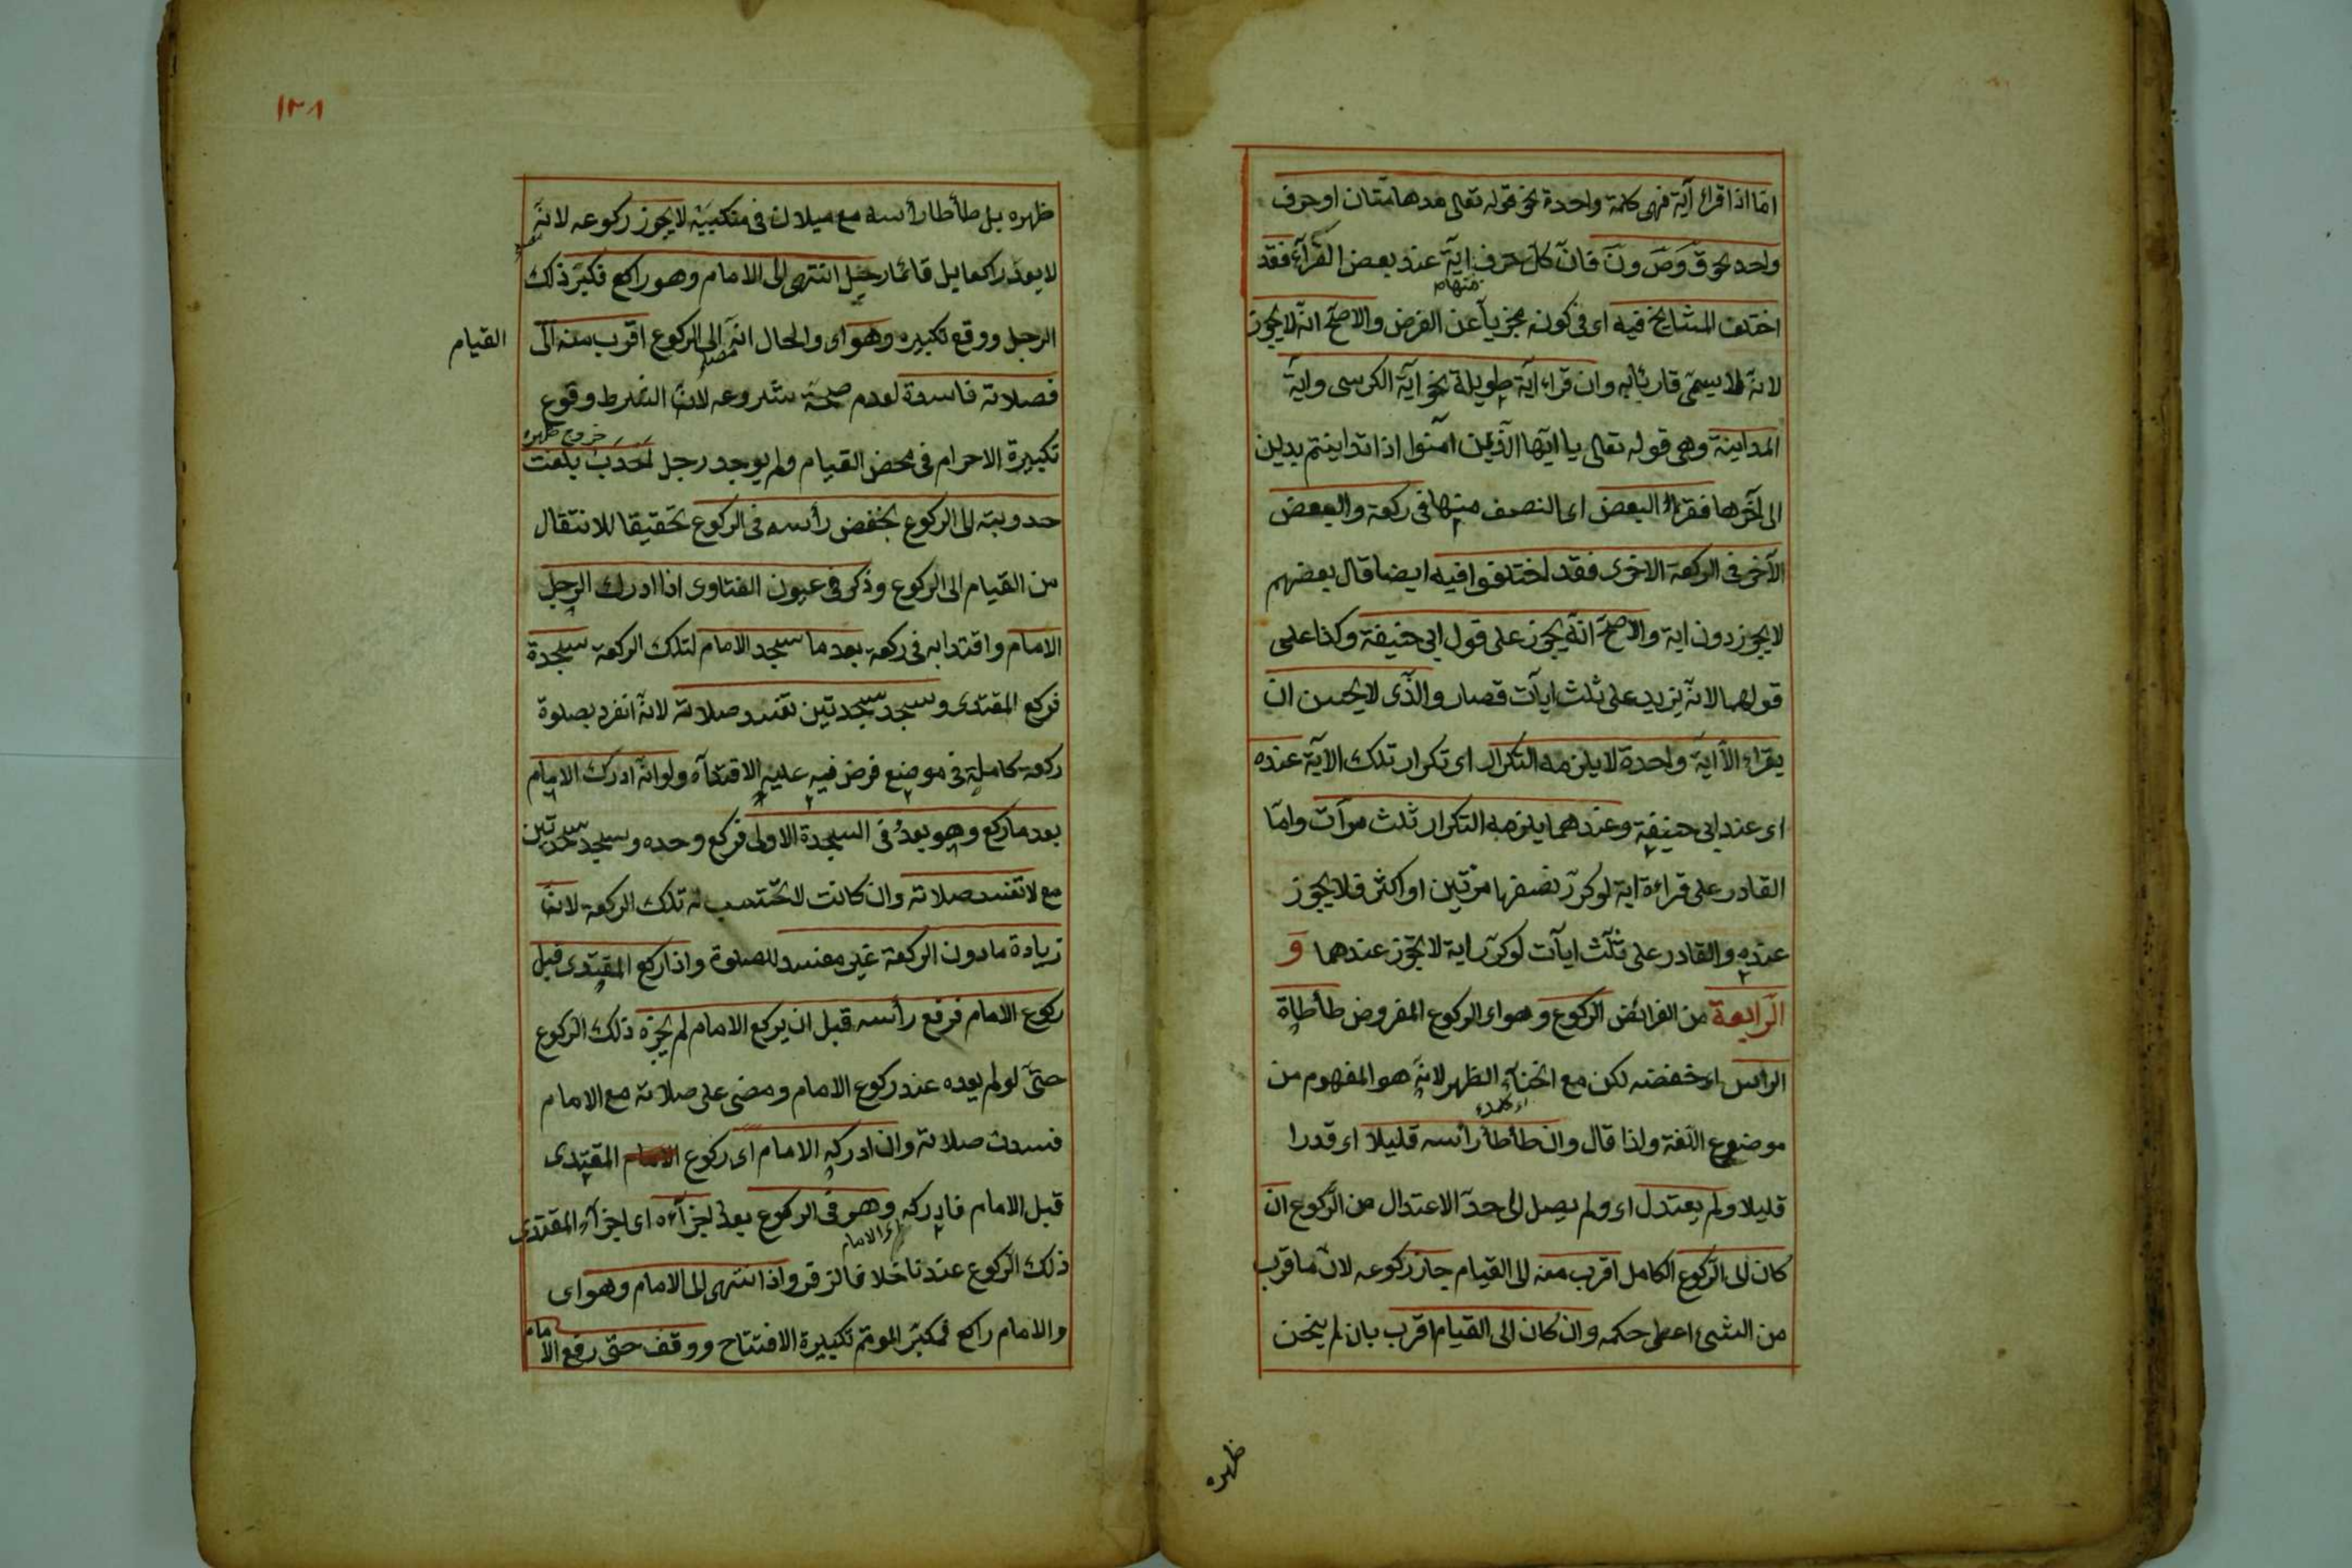 اما اذا قراء آية فهى كلمة واحدة نحو قوله تعالى مدهامتان او حرف
واحد نحو ق وص ون فان كل حرف منها اية عند بعض القرآء فقد
اختلف المشايخ فيه اى فى كونه مجزيا عن الفرض والاصح انه لا يجوز
لانه لا يسمى قارئا به وان قراء آية طويلة نحو اية الكرسى واية
المداينة وهى قوله تعالى يا ايها الذين آمنوا اذا تداينتم بدين
الى آخرها فقراء البعض اى النصف منها فى ركعة والبعض
الآخر فى الركعة الاخرى فقد اختلفوا فيه ايضا قال بعضهم
لا يجوز دون اية والاصح انه يجوز على قول ابى حنيفة وكذا على
قولهما لانه يزيد على ثلث ايآت قصار والذى لا يحسن ان
يقراء الا اية واحدة لا يلزمه التكرار اى تكرار تلك الآية عنده
اى عند ابى حنيفة وعندهما يلزمه التكرار ثلث مرآت واما
القادر على قراءة اية لو كرر نصفها مرتين او اكثر فلا يجوز
عنده والقادر على ثلث ايآت لو كرر اية لا يجوز عندهما و
الرابعة من الفرائض الركوع وهو اى الركوع المفروض طأطاة
الراس اى خفضه لكن مع انحناء الظهر لانه هو المفهوم من
موضوع اللغة ولذا قال وان طأطأ رأسه قليلا اى قدرا
قليلا ولم يعتدل اى ولم يصل الى حد الاعتدال من الركوع ان
كان الى الركوع الكامل اقرب منه الى القيام جاز ركوعه لان ما قرب
من الشئ اعطى حكمه وان كان الى القيام اقرب بان لم يحن
ظهره
١٣٨
ظهره بل طأطا رأسه مع ميلان فى منكبيه لا يجوز ركوعه لانه
لا يعد راكعا بل قائما رجل انتهى الى الامام وهو راكع فكبر ذلك
الرجل ووقع تكبيره وهو اى والحال انه الى الركوع اقرب منه الى القيام
فصلاته فاسدة لعدم صحة شروعه لان الشرط وقوع
تكبيرة الاحرام فى محض القيام ولم يوجد رجل احدب بلغت
حدوبته الى الركوع يخفض رأسه فى الركوع تحقيقا للانتقال
من القيام الى الركوع وذكر فى عيون الفتاوى اذا ادرك الرجل
الامام واقتدا به فى ركعة بعد ما سجد الامام لتلك الركعة سجدة
فركع المقتدى وسجد سجدتين تفسد صلاته لانه انفرد بصلوة
ركعة كاملة فى موضع فرض فيه عليه الاقتدآء ولو انه ادرك الامام
بعد ما ركع وهو بعد فى السجدة الاولى فركع وحده وسجد سجدتين
مع لا تفسد صلاته وان كانت لا تحتسب له تلك الركعة لان
زيادة ما دون الركعة غير مفسد للصلوة واذا ركع المقتدى قبل
ركوع الامام فرفع رأسه قبل ان يركع الامام لم يجزه ذلك الركوع
حتى لو لم يعده عند ركوع الامام ومضى على صلاته مع الامام
فسدت صلاته وان ادركه الامام اى ركوع المقتدى
قبل الامام فادركه اى الامام وهو فى الركوع بعد اجزآءه اى اجزآء المقتدى
ذلك الركوع عندنا خلافا لزفر واذا انتهى الى الامام وهو اى
والامام راكع فكبر الموتم تكبيرة الافتتاح ووقف حتى رفع الامام